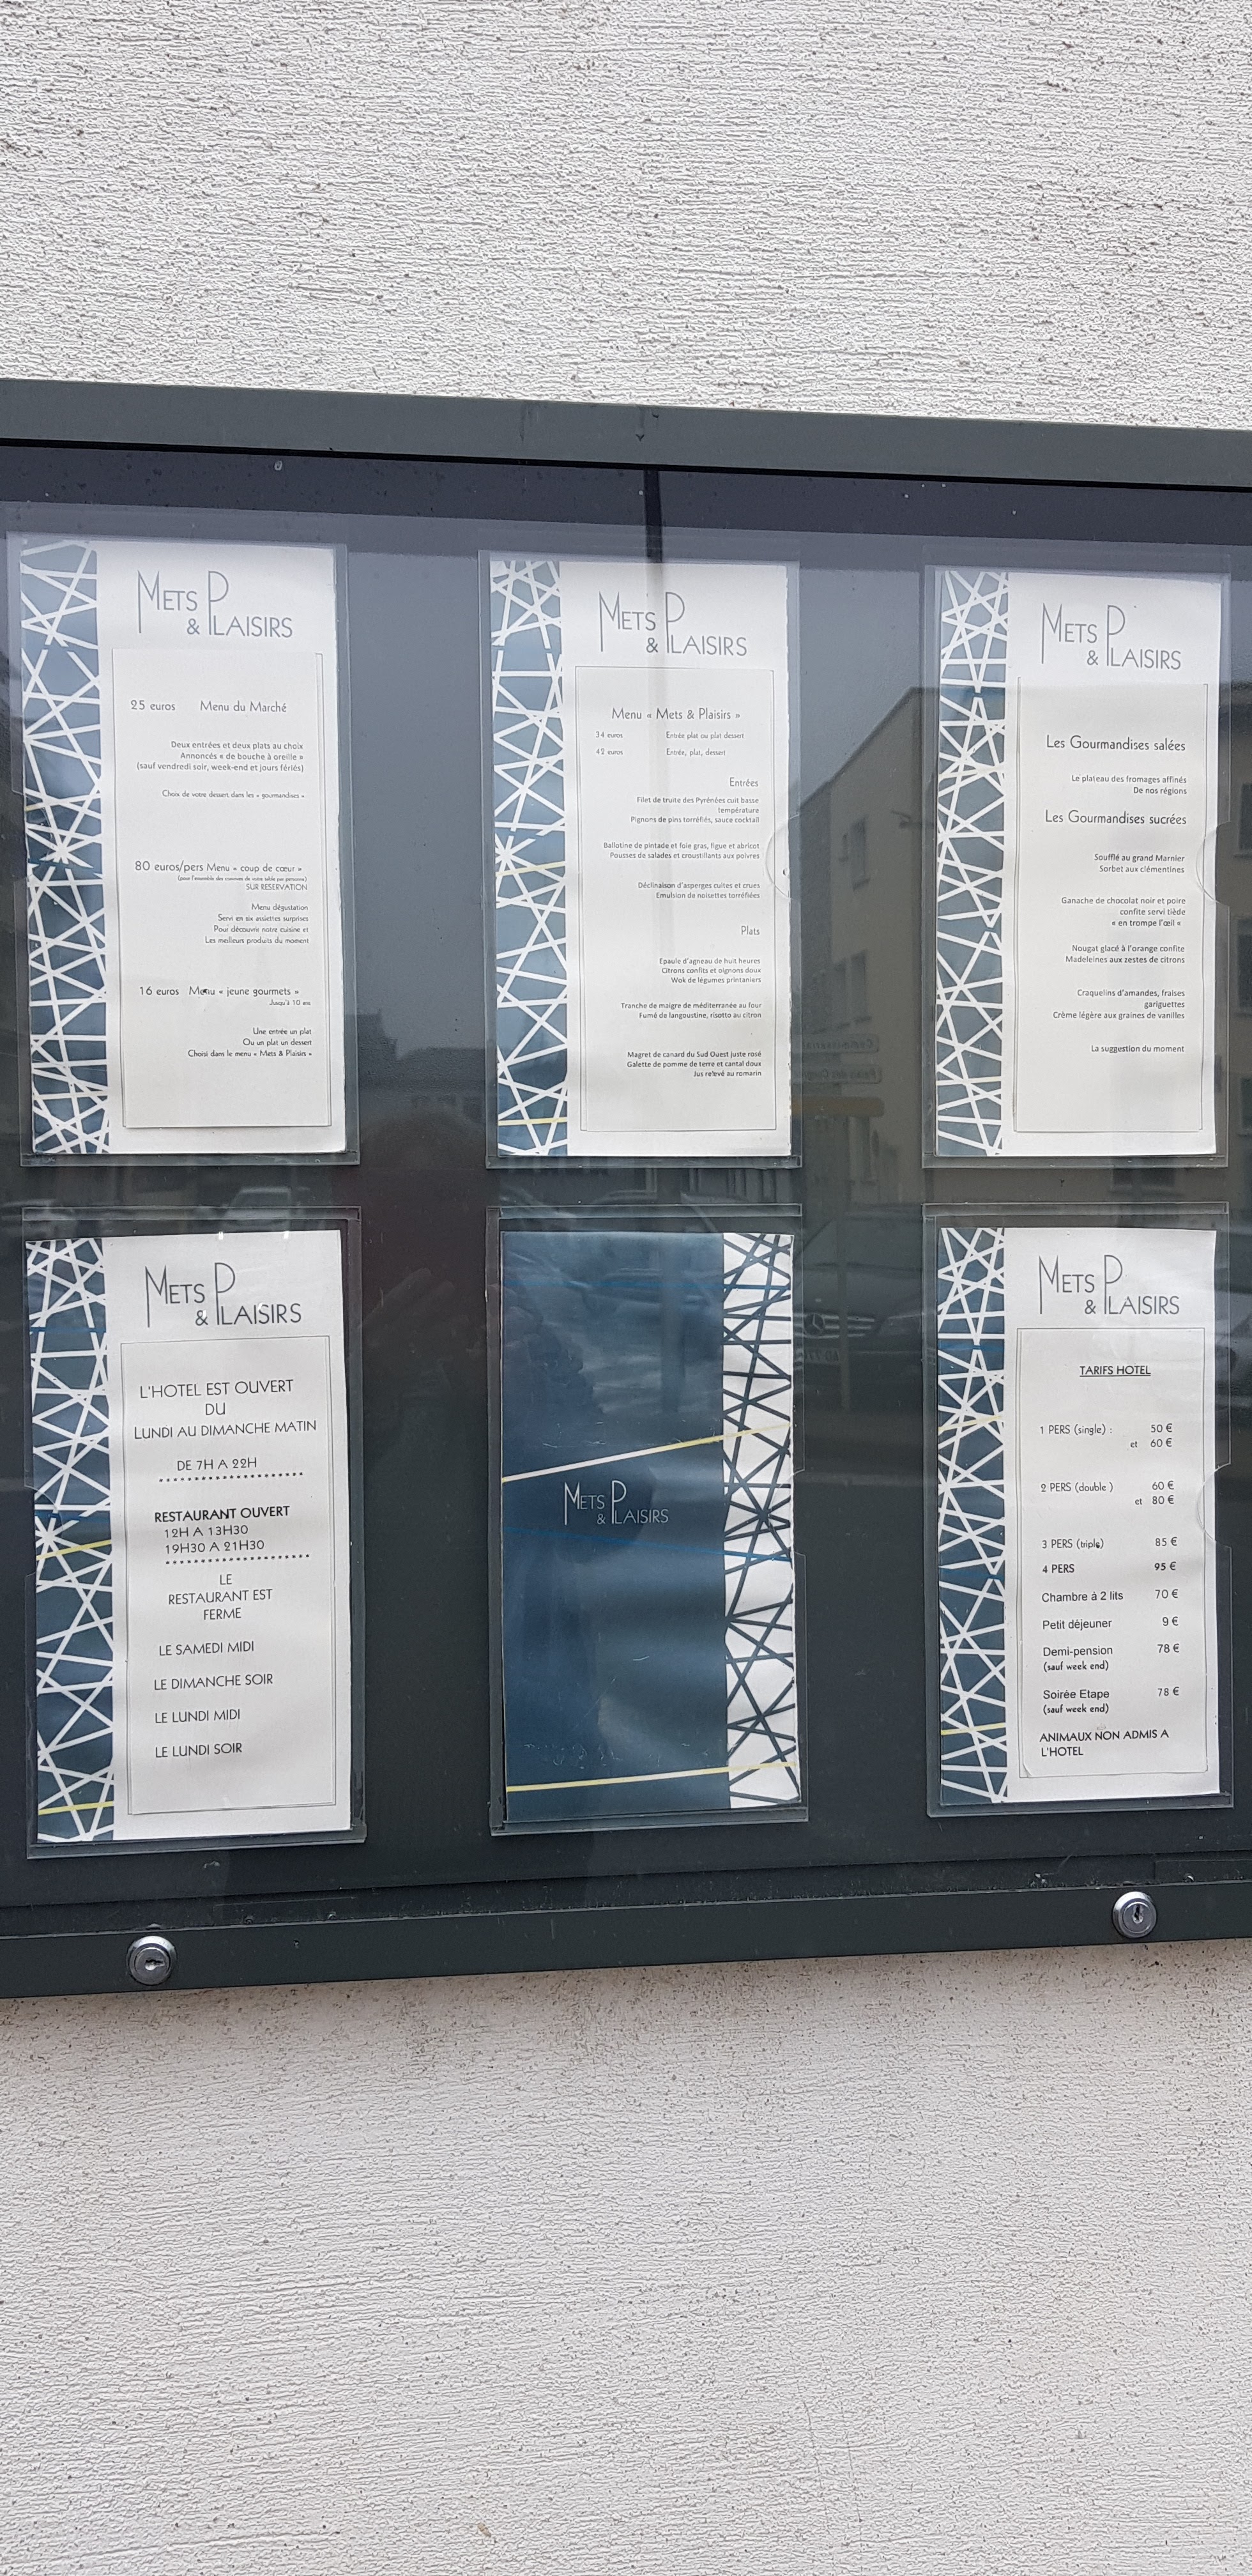 METS PLAISIRS
&
25 euros Menu du Marché
Deux entrées et deux plats au choix
Annoncés « de bouche à oreille »
(sauf vendredi soir, week-end et jours fériés)
Choix de votre dessert dans les « gourmandises »
80 euros/pers Menu « coup de cœur »
(pour l'ensemble des convives de votre table par personne)
SUR RESERVATION
Menu dégustation
Servi en six assiettes surprises
Pour découvrir notre cuisine et
Les meilleurs produits du moment
16 euros Menu « jeune gourmets »
Jusqu'à 10 ans
Une entrée un plat
Ou un plat un dessert
Choisi dans le menu « Mets & Plaisirs »
METS PLAISIRS
&
Menu « Mets & Plaisirs »
34 euros Entrée plat ou plat dessert
42 euros Entrée, plat, dessert
Entrées
Filet de truite des Pyrénées cuit basse
température
Pignons de pins torréfiés, sauce cocktail
Ballotine de pintade et foie gras, figue et abricot
Pousses de salades et croustillants aux poivres
Déclinaison d'asperges cuites et crues
Emulsion de noisettes torréfiées
Plats
Epaule d'agneau de huit heures
Citrons confits et oignons doux
Wok de légumes printaniers
Tranche de maigre de méditerranée au four
Fumé de langoustine, risotto au citron
Magret de canard du Sud Ouest juste rosé
Galette de pomme de terre et cantal doux
Jus relevé au romarin
METS PLAISIRS
&
Les Gourmandises salées
Le plateau des fromages affinés
De nos régions
Les Gourmandises sucrées
Soufflé au grand Marnier
Sorbet aux clémentines
Ganache de chocolat noir et poire
confite servi tiède
« en trompe l'œil «
Nougat glacé à l'orange confite
Madeleines aux zestes de citrons
Craquelins d'amandes, fraises
gariguettes
Crème légère aux graines de vanilles
La suggestion du moment
METS PLAISIRS
&
L'HOTEL EST OUVERT
DU
LUNDI AU DIMANCHE MATIN
DE 7H A 22H
RESTAURANT OUVERT
12H A 13H30
19H30 A 21H30
LE
RESTAURANT EST
FERME
LE SAMEDI MIDI
LE DIMANCHE SOIR
LE LUNDI MIDI
LE LUNDI SOIR
METS PLAISIRS
&
METS PLAISIRS
&
TARIFS HOTEL
1 PERS (single) : 50 €
et 60 €
2 PERS (double ) 60 €
et 80 €
3 PERS (triple) 85 €
4 PERS 95 €
Chambre à 2 lits 70 €
Petit déjeuner 9 €
Demi-pension 78 €
(sauf week end)
Soirée Etape 78 €
(sauf week end)
ANIMAUX NON ADMIS A
L'HOTEL